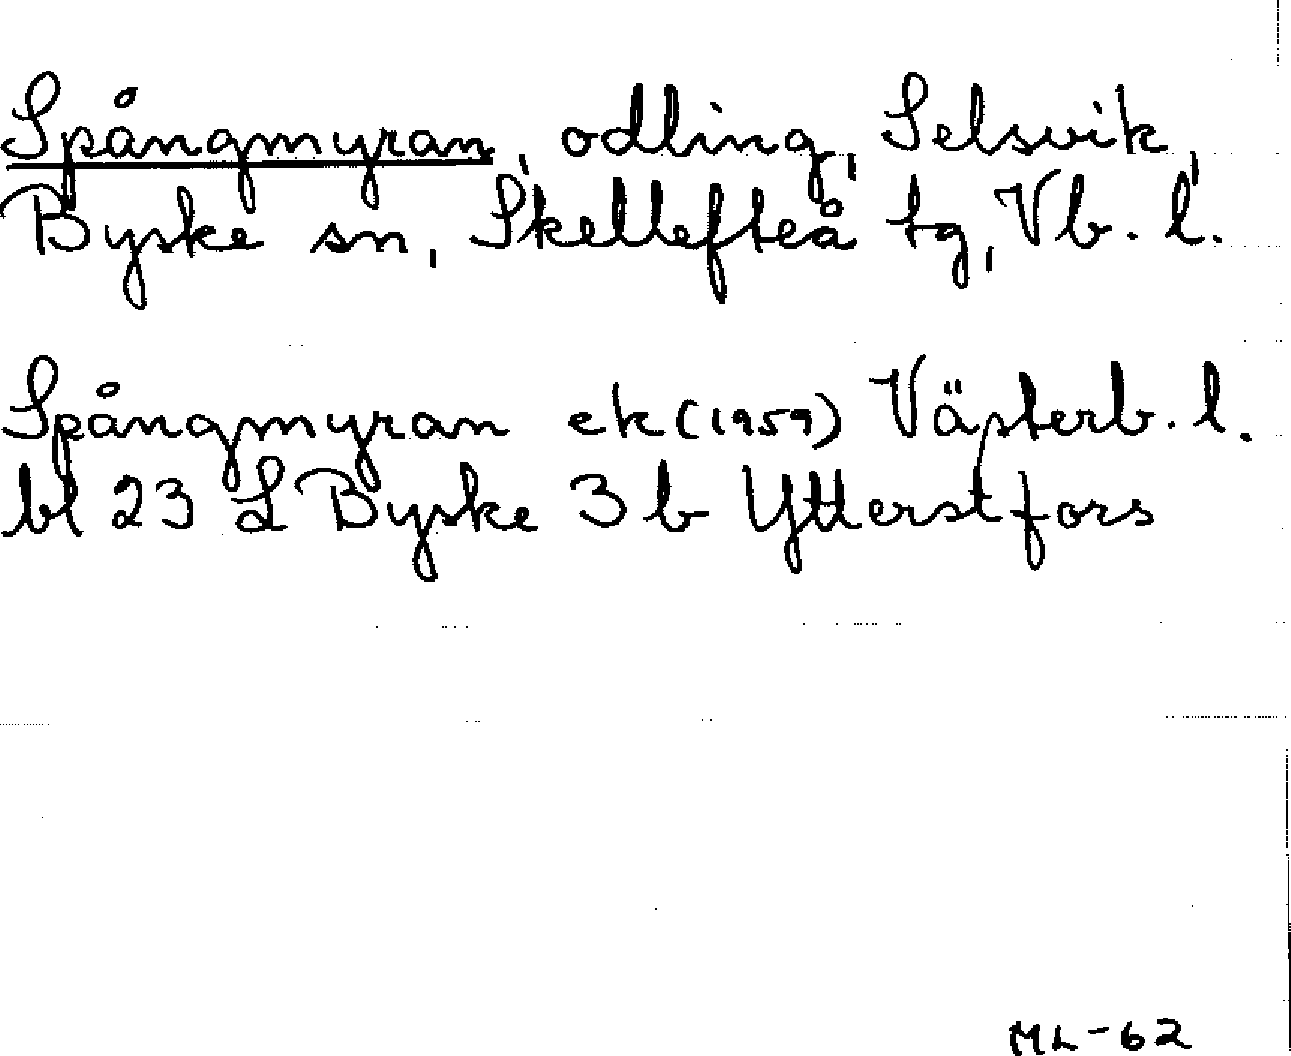 Spångmyran, odling, Selsvik,
Byske sn, Skellefteå tg, Vb. l.
Spångmyran ek (1959) Västerb. l.
bl 23 L Byske 3 b Ytterstfors
ML-62